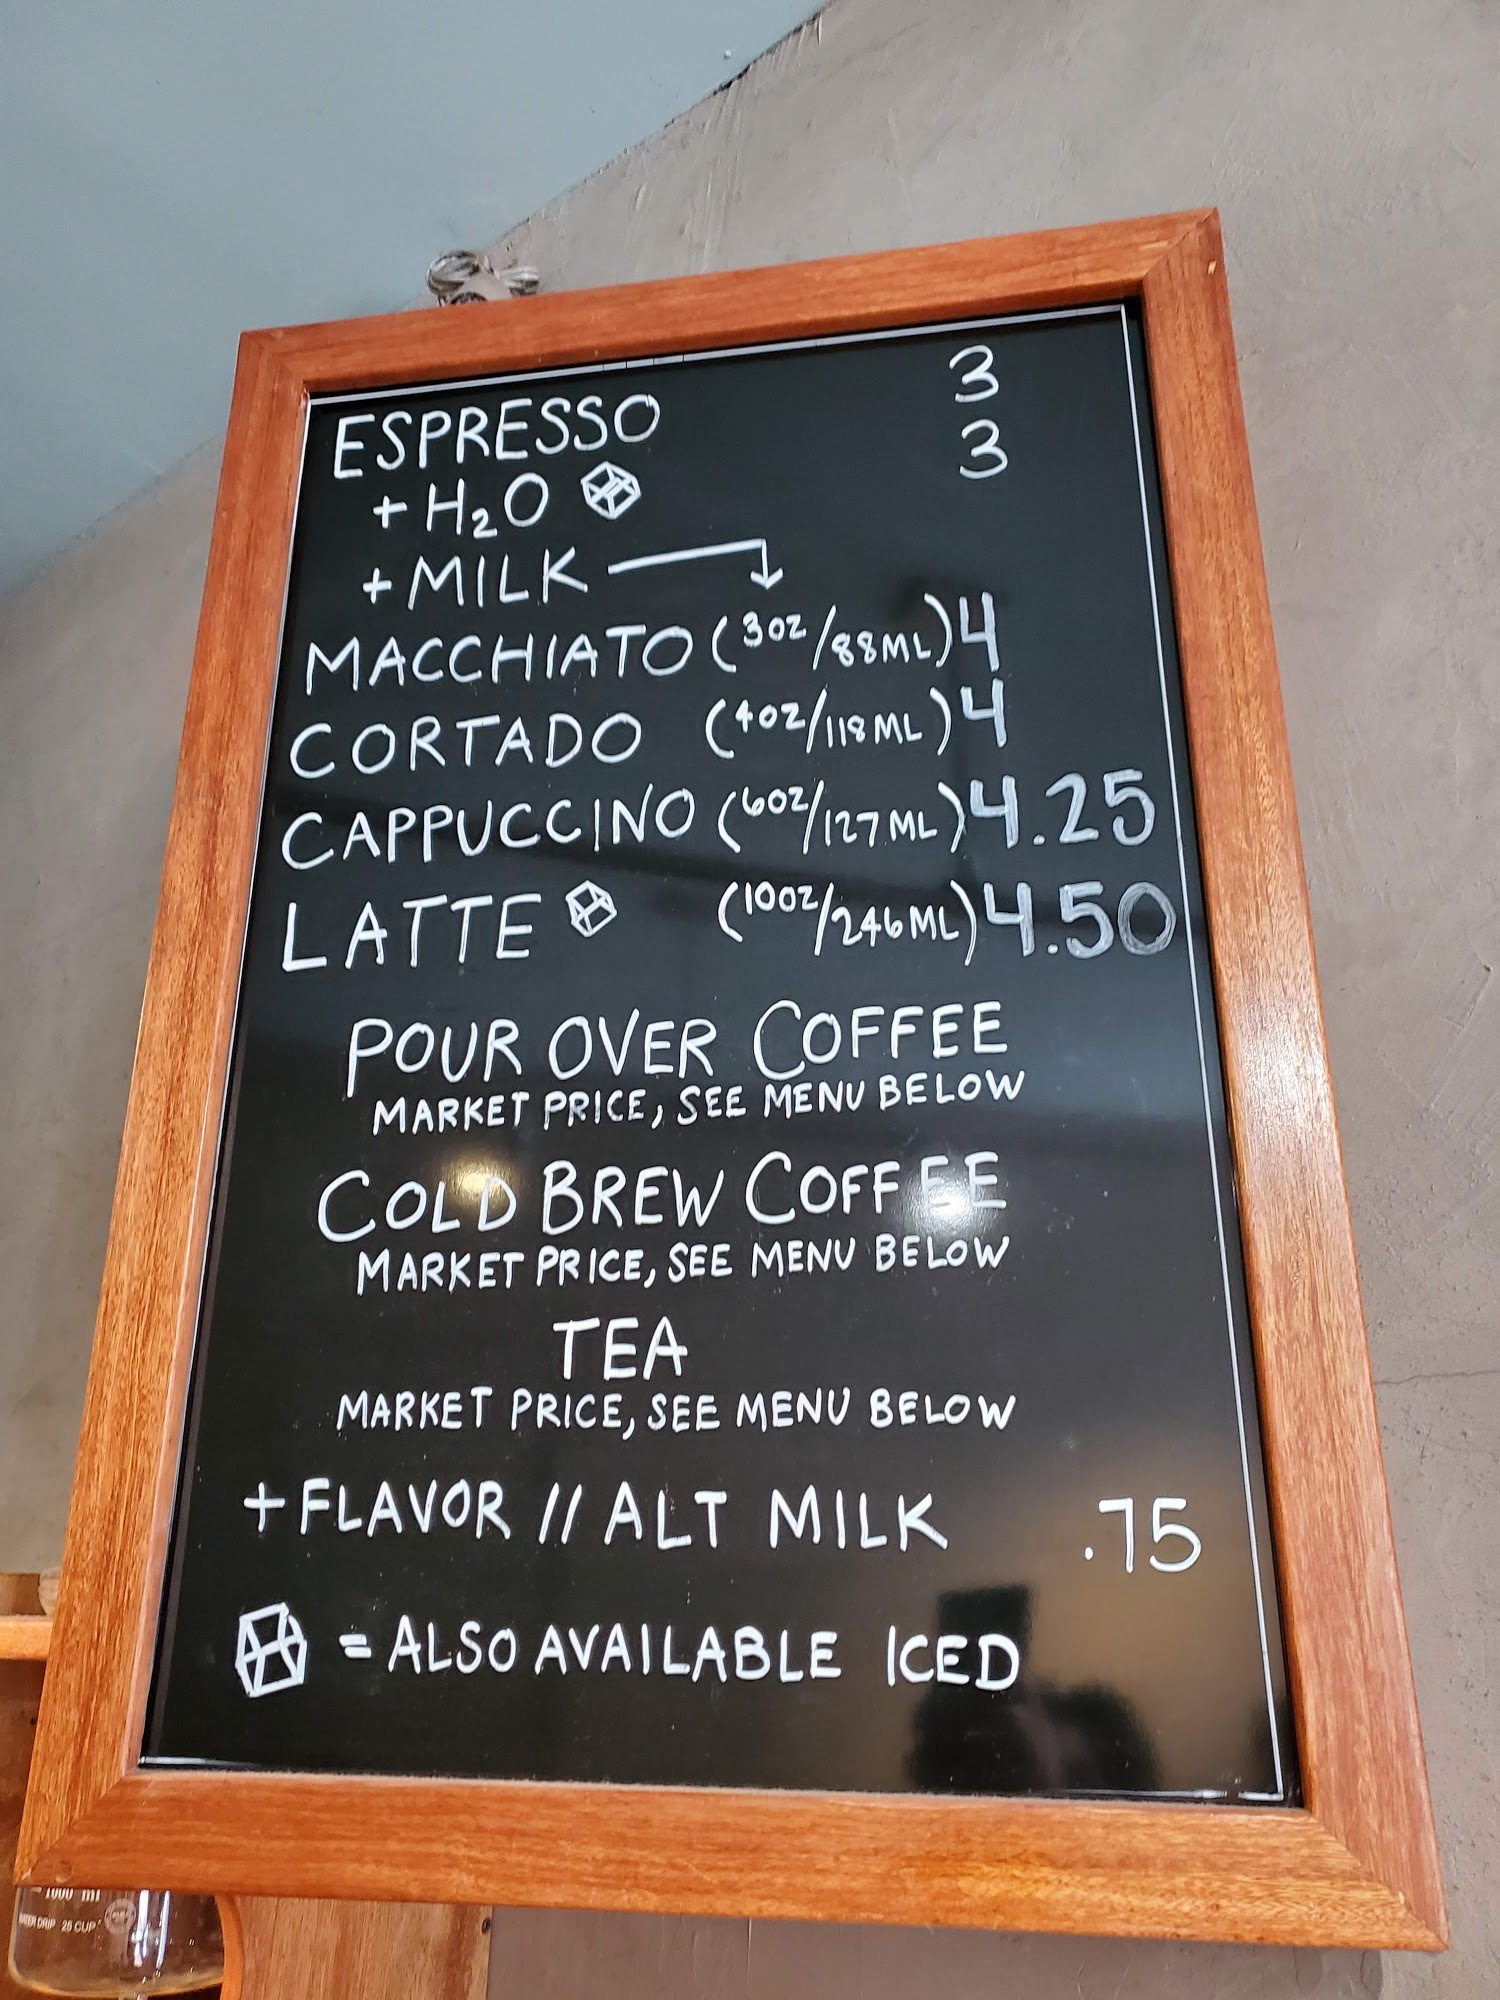 ESPRESSO 3
+ H₂O 3
+ MILK
MACCHIATO (3OZ/88ML) 4
CORTADO (4OZ/118ML) 4
CAPPUCCINO (6OZ/127ML) 4.25
LATTE (10OZ/246ML) 4.50
POUR OVER COFFEE
MARKET PRICE, SEE MENU BELOW
COLD BREW COFFEE
MARKET PRICE, SEE MENU BELOW
TEA
MARKET PRICE, SEE MENU BELOW
+ FLAVOR // ALT MILK .75
= ALSO AVAILABLE ICED
1000 ml
WATER DRIP 25 CUP